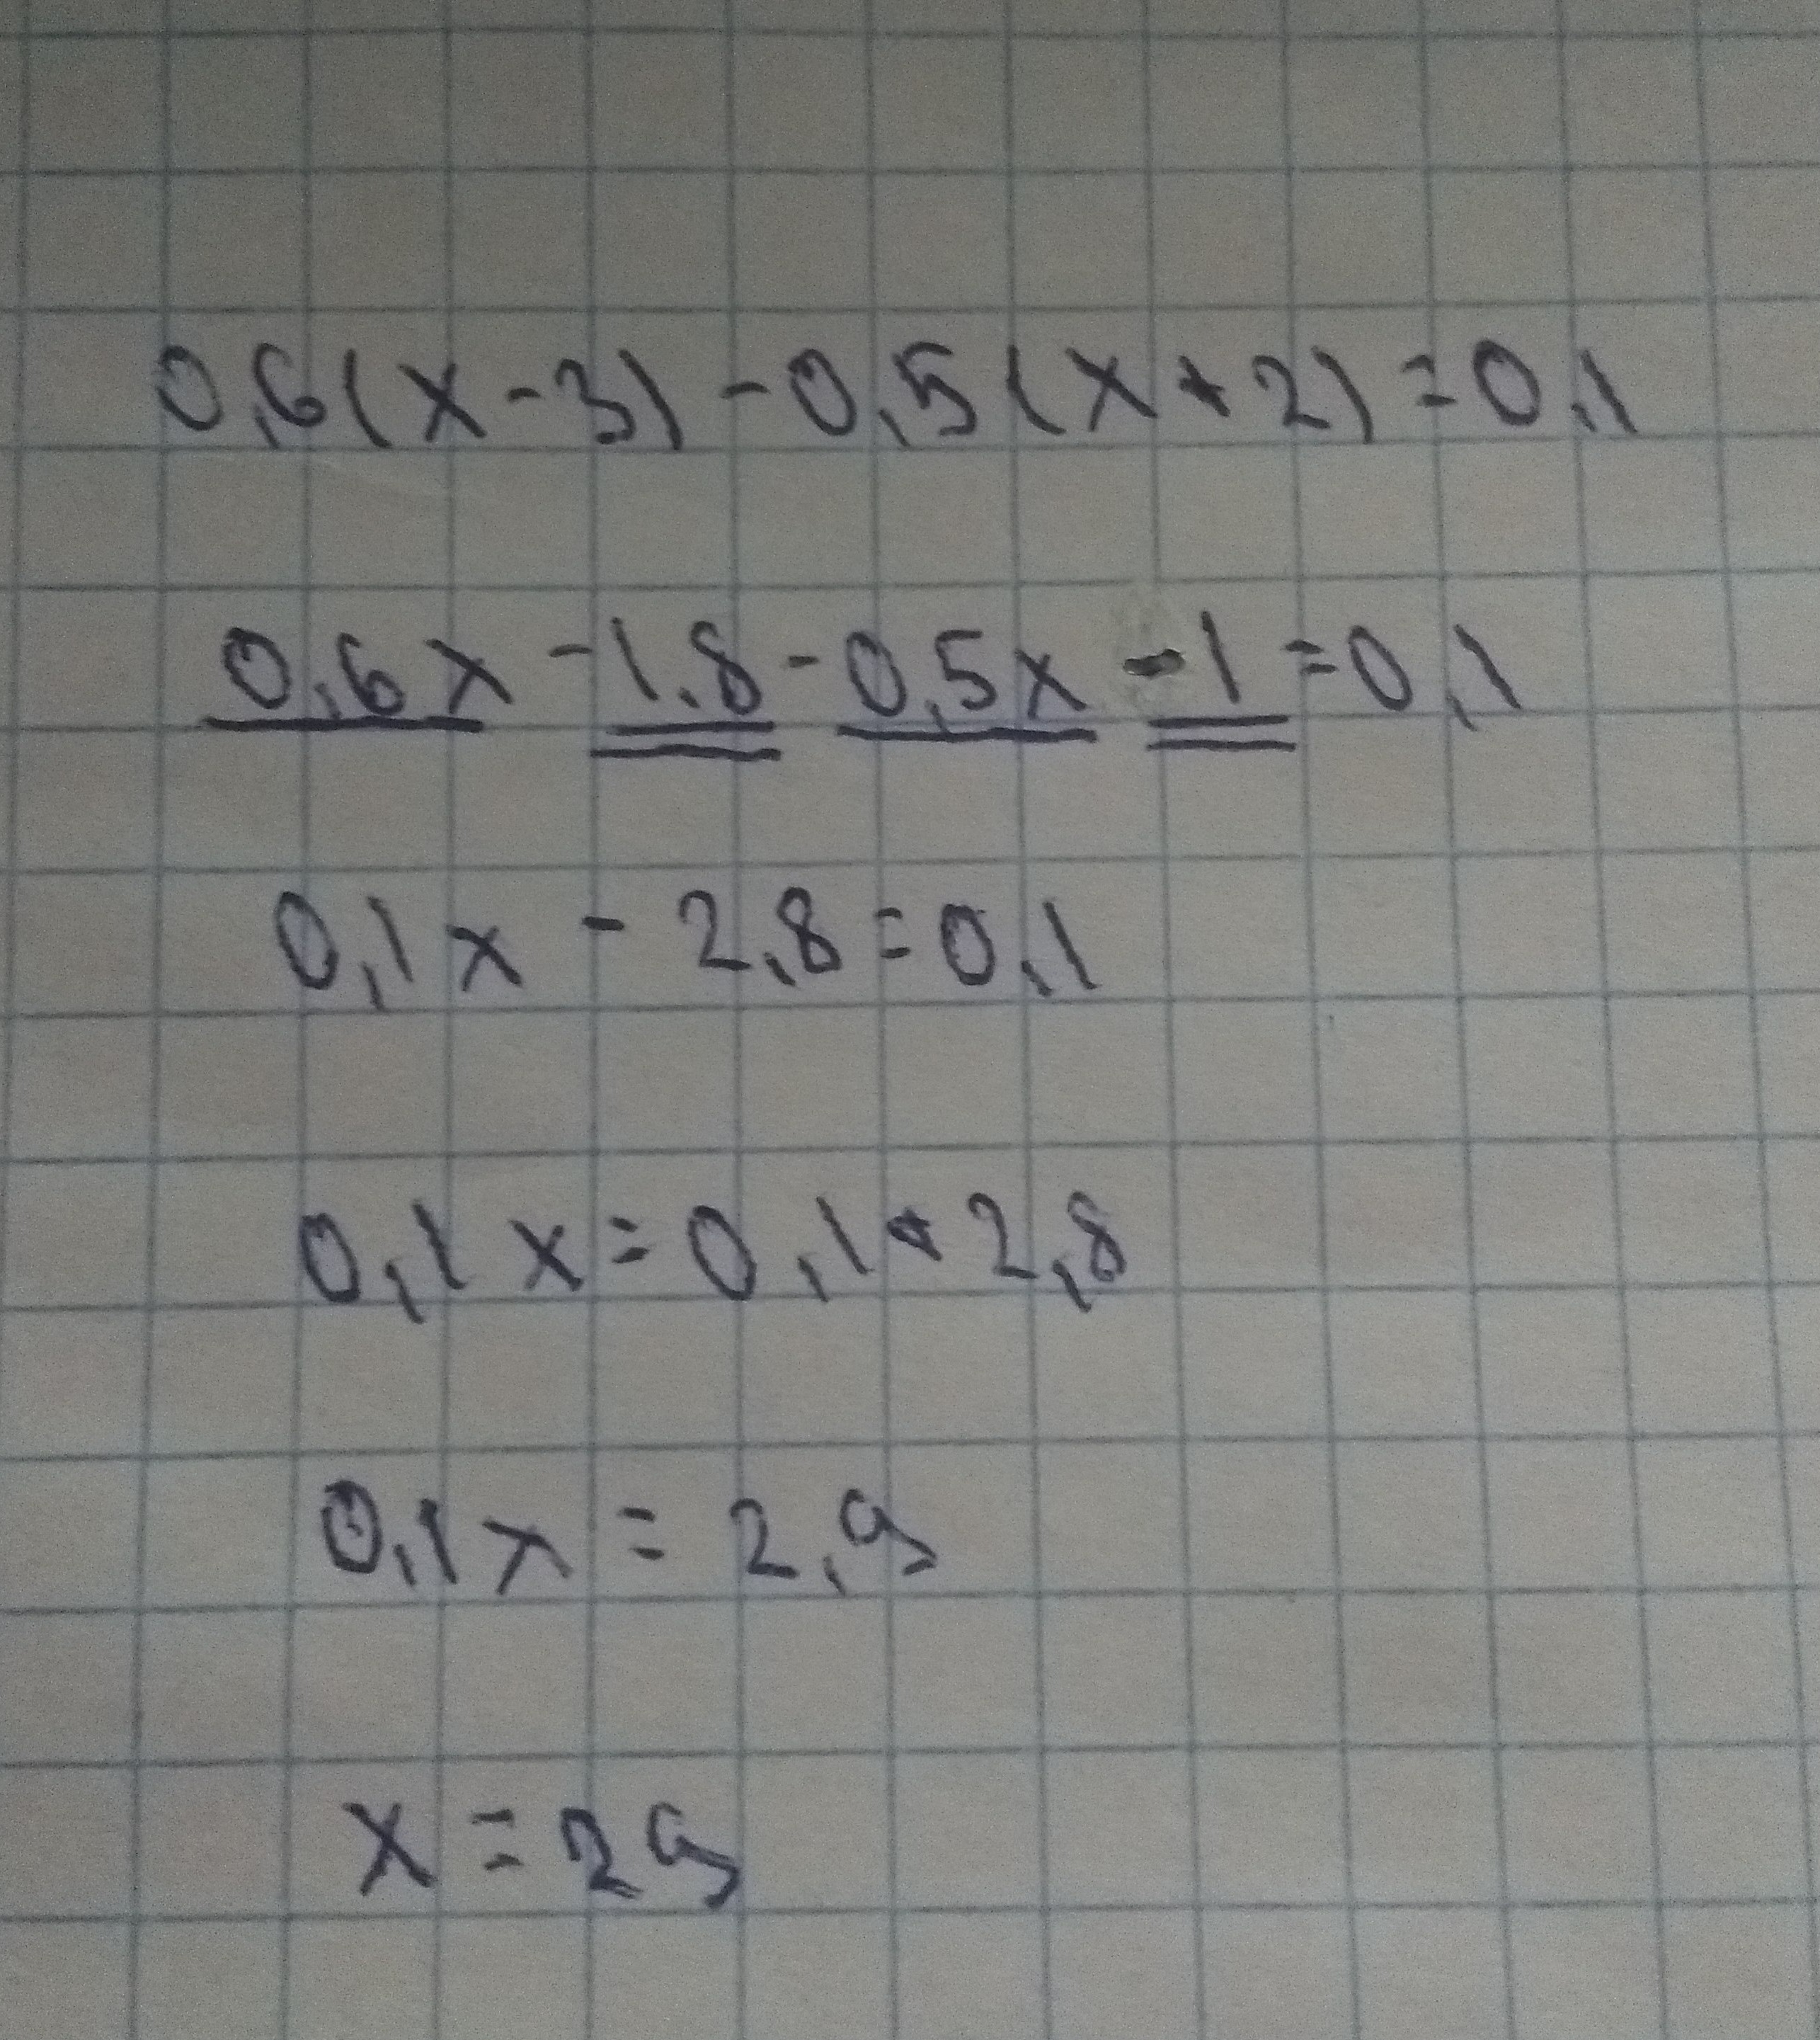 0,6(x-3)-0,5(x+2)=0,1
0,6x-1,8-0,5x-1=0,1
0,1x-2,8=0,1
0,1x=0,1+2,8
0,1x=2,9
x=29